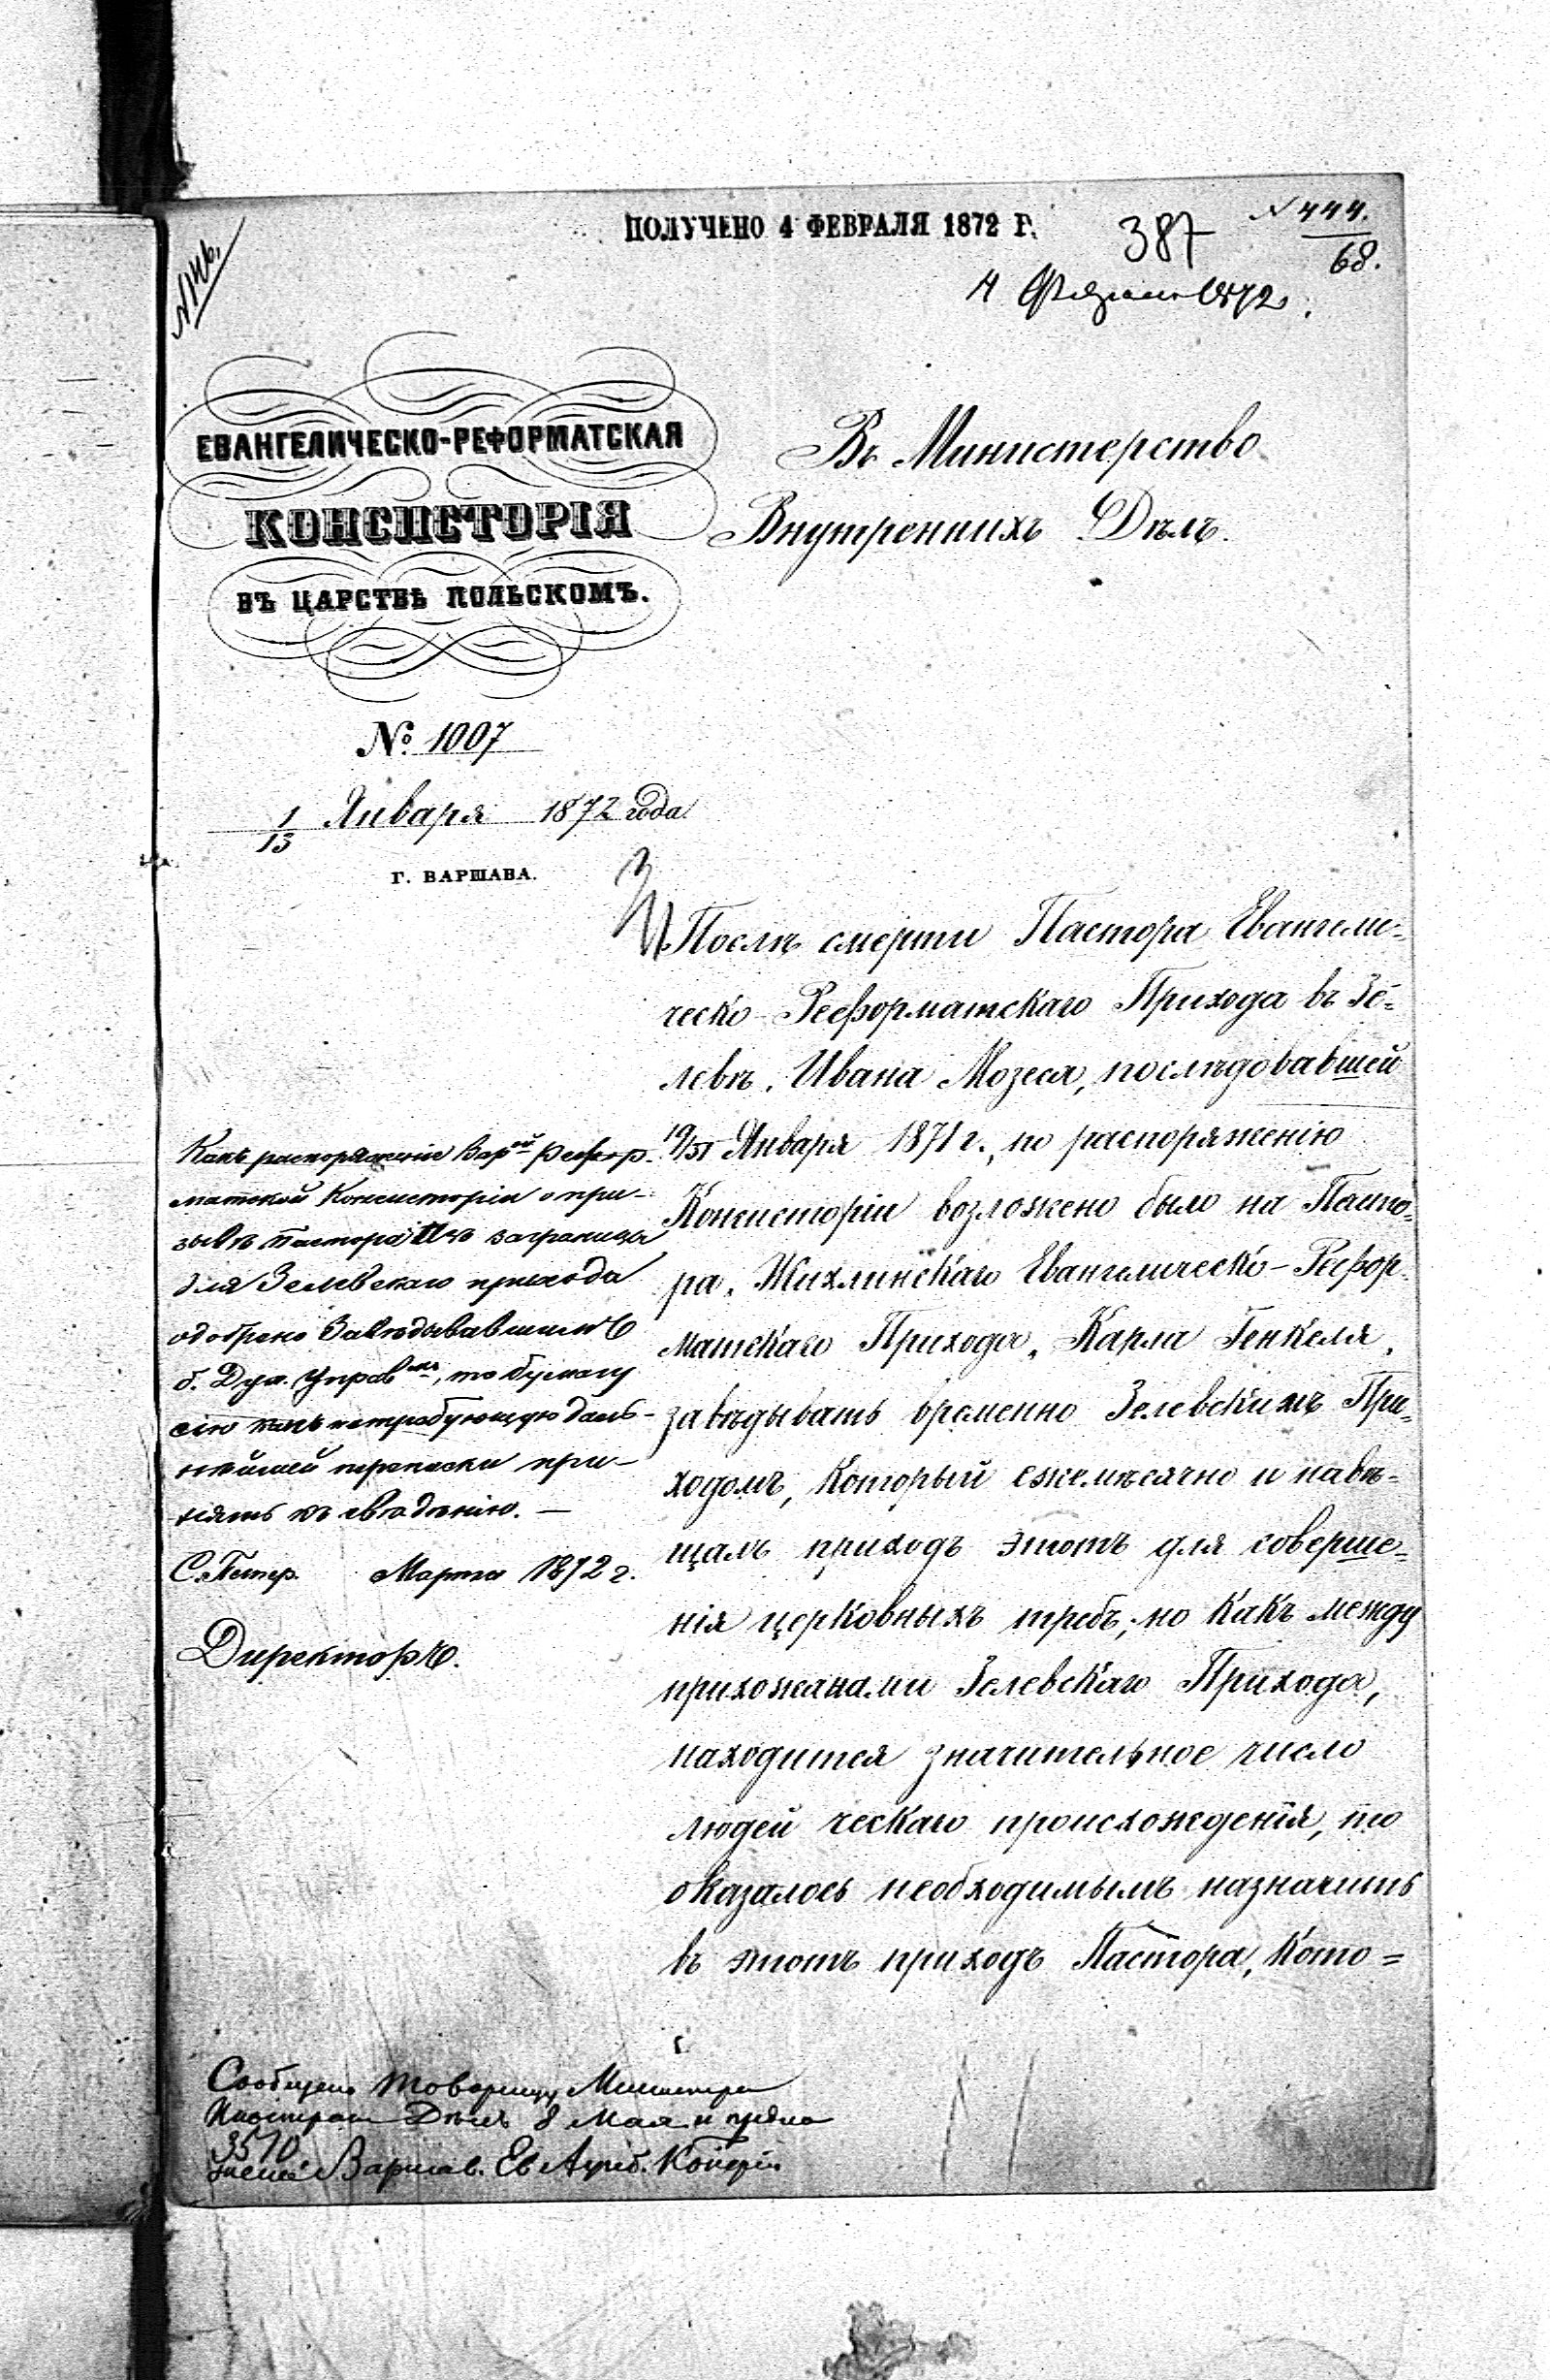 ПОЛУЧЕНО 4 ФЕВРАЛЯ 1872 Г.
387
N 444.
68.
4 1872
ЕВАНГЕЛИЧЕСКО-РЕФОРМАТСКАЯ
КОНСИСТОРІЯ
ВЪ ЦАРСТВѢ ПОЛЬСКОМЪ.
№ 1007
1/13 Января 1872 года
Г. ВАРШАВА.
Въ Министерство
Внутреннихъ Дѣлъ.
Послѣ смерти Пастора Евангели=
ческо-Реформатскаго Прихода въ Зе=
левѣ, Ивана Мозеса, послѣдовавшей
19/31 Января 1871 г., по распоряженію
Консисторіи возложено было на Пасто=
ра, Жихлинскаго Евангелическо-Рефор=
матскаго Прихода, Карла Генкеля,
завѣдывать временно Зелевскимъ При=
ходомъ, который ежемѣсячно и навѣ=
щалъ приходъ этотъ для соверше=
нія церковныхъ требъ; но какъ между
прихожанами Зелевскаго Прихода,
находится значительное число
людей ческаго происхожденія, то
оказалось необходимымъ назначить
въ этотъ приходъ Пастора, кото=
Какъ распоряженіе Вар<sup>ой</sup> Рефор-
матской Консисторіи о при-
зывѣ Пастора изъ заграницы
для Зелевскаго прихода
одобрено Завѣдывавшимъ
б. Дух. Управ<sup>мъ</sup>, то бумагу
сію какъ нетребующую даль-
нѣйшей переписки при-
нять къ свѣдѣнію. —
С. Петер. Марта 1872 г.
Директоръ.
Сообщено Товарищу Министра
Иностран Дѣлъ 8 Мая и
3570
Варшав. Ев Аугсб.